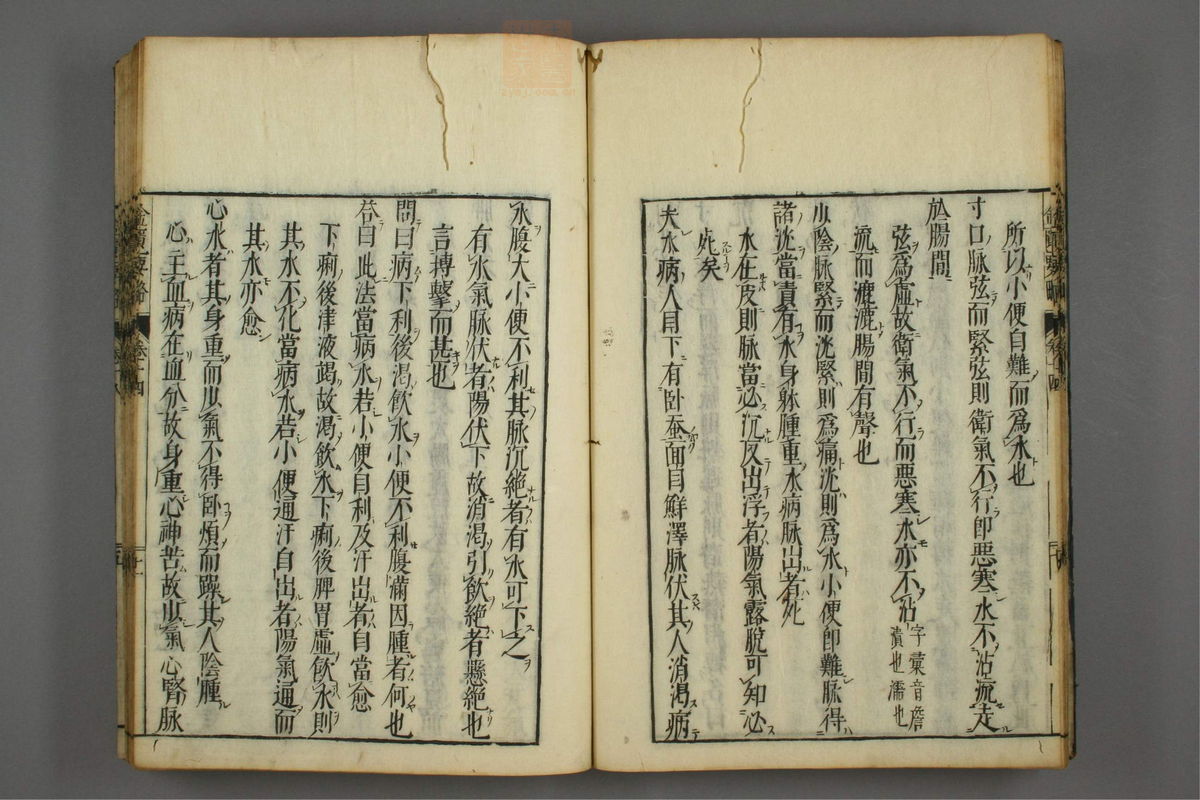 所以小便自難而為水也
寸口脉弦而緊弦則衛氣不行即惡寒水不沾流走
於腸間
弦為虛故衛氣不行而惡寒水亦不沾字彙音詹漬也濡也
流而漉漉腸間有聲也
少陰脉緊而沈緊則為痛沈則為水小便即難脉得
諸沈當責有水身躰腫重水病脉出者死
水在皮則脉當必沉反出浮者陽氣露脫可知必
死矣
夫水病人目下有卧蚕面目鮮澤脉伏其人消渴病
水腹大小便不利其脉沉絶者有水可下之
有水氣脉伏者陽伏下故消渴引飲絶者懸絶也
言搏擊而甚也
問曰病下利後渴飲水小便不利腹滿因腫者何也
荅曰此法當病水若小便自利及汗出者自當愈
下痢後津液竭故渴飲水下痢後脾胃虛飲水則
其水不化當病水若小便通汗自出者陽氣通而
其水亦愈
心水者其身重而少氣不得卧煩而躁其人陰腫
心主血病在血分故身重心神苦故少氣心腎脉